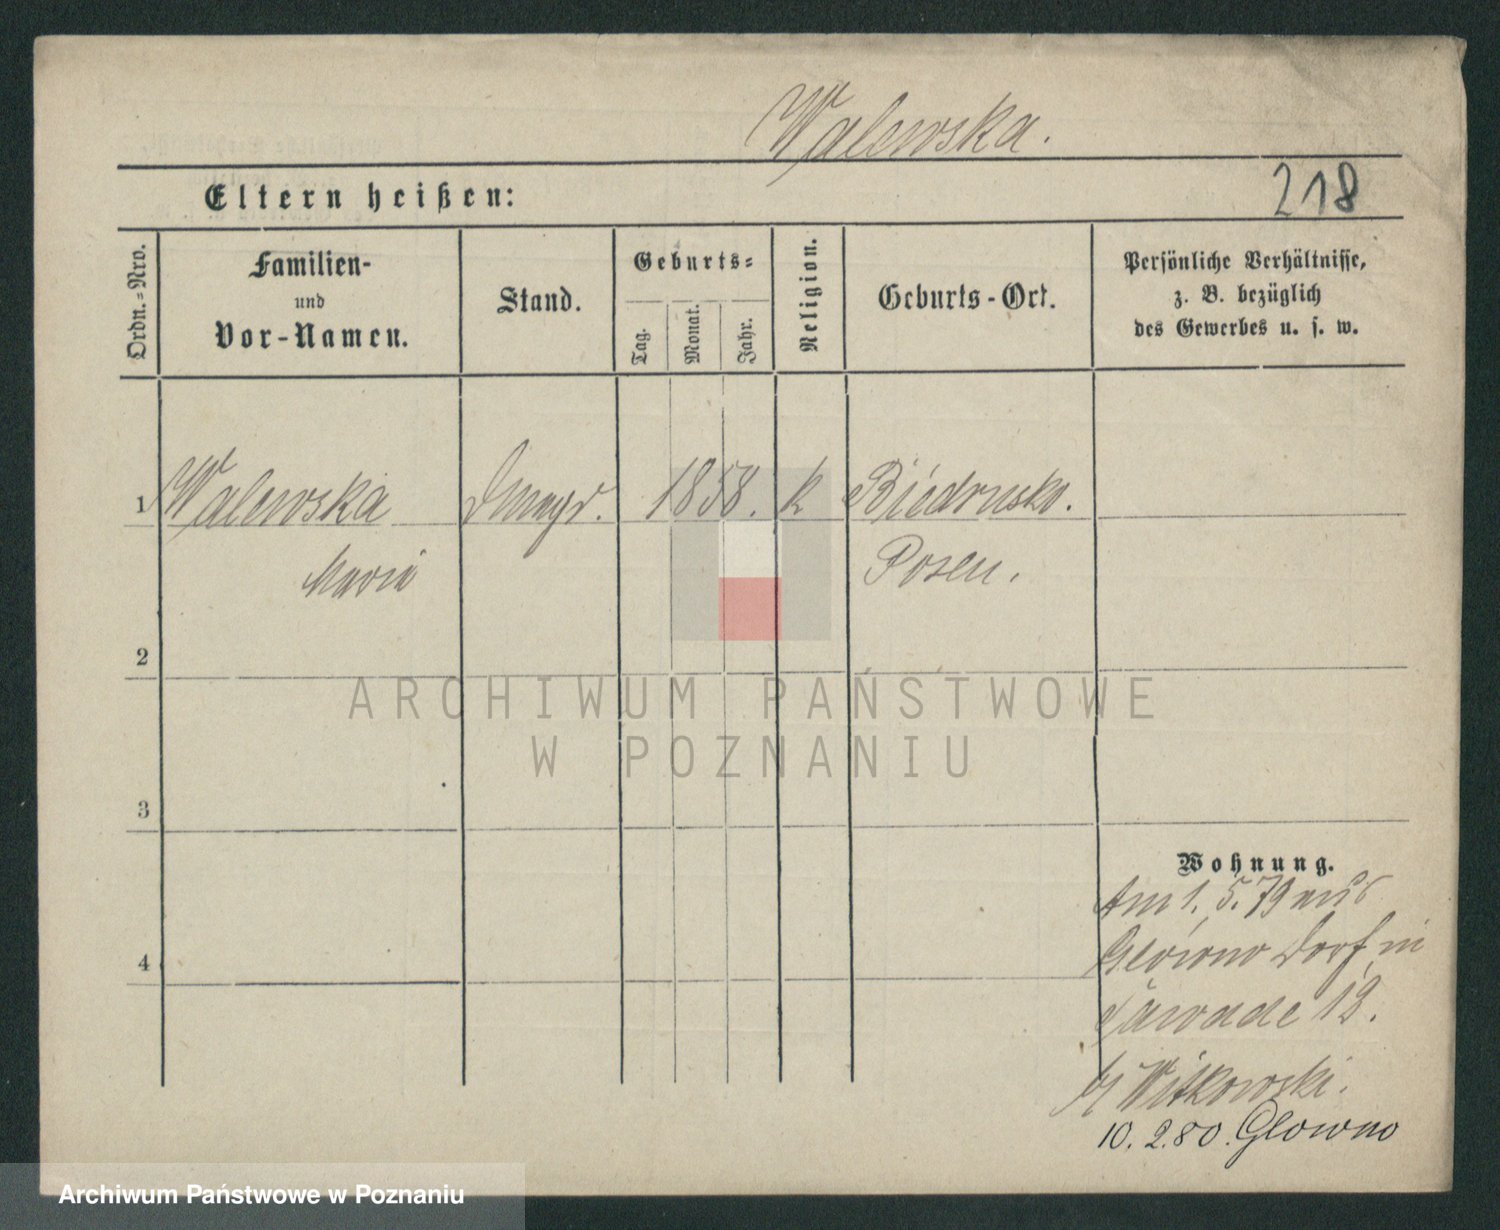 Walewska.
Eltern heißen:
218
Ordn.=Nro.
Familien-
und
Vor-Namen.
Stand.
Geburts=
Tag.
Monat.
Jahr.
Religion.
Geburts-Ort.
Persönliche Verhältnisse,
z. B. bezüglich
des Gewerbes u. s. w.
1 Walewska 1858. k Biedrusko.
Maria Posen.
2
ARCHIWUM PAŃSTWOWE
W POZNANIU
3
Wohnung.
Am 1. 5. 79 aus
Glowno Dorf in
4
Zawade 12.
b/ Witkowski.
10. 2. 80. Glowno
Archiwum Państwowe w Poznaniu